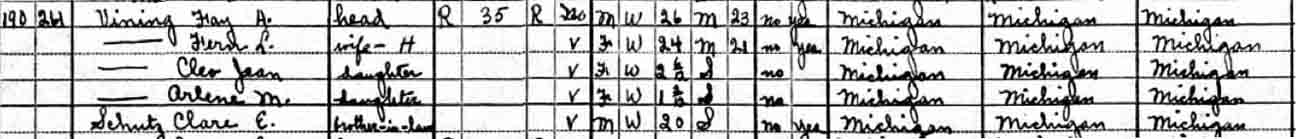 190 261 Vining Fay A. head R 35 R No M W 26 M 23 no yes Michigan Michigan Michigan
—— Fern L. wife-H V F W 24 M 21 no yes Michigan Michigan Michigan
—— Cleo Jean daughter V F W 2 S no Michigan Michigan Michigan
—— Arlene M. daughter V F W 1 S no Michigan Michigan Michigan
Schutz Clare E. brother-in-law V M W 20 S no yes Michigan Michigan Michigan